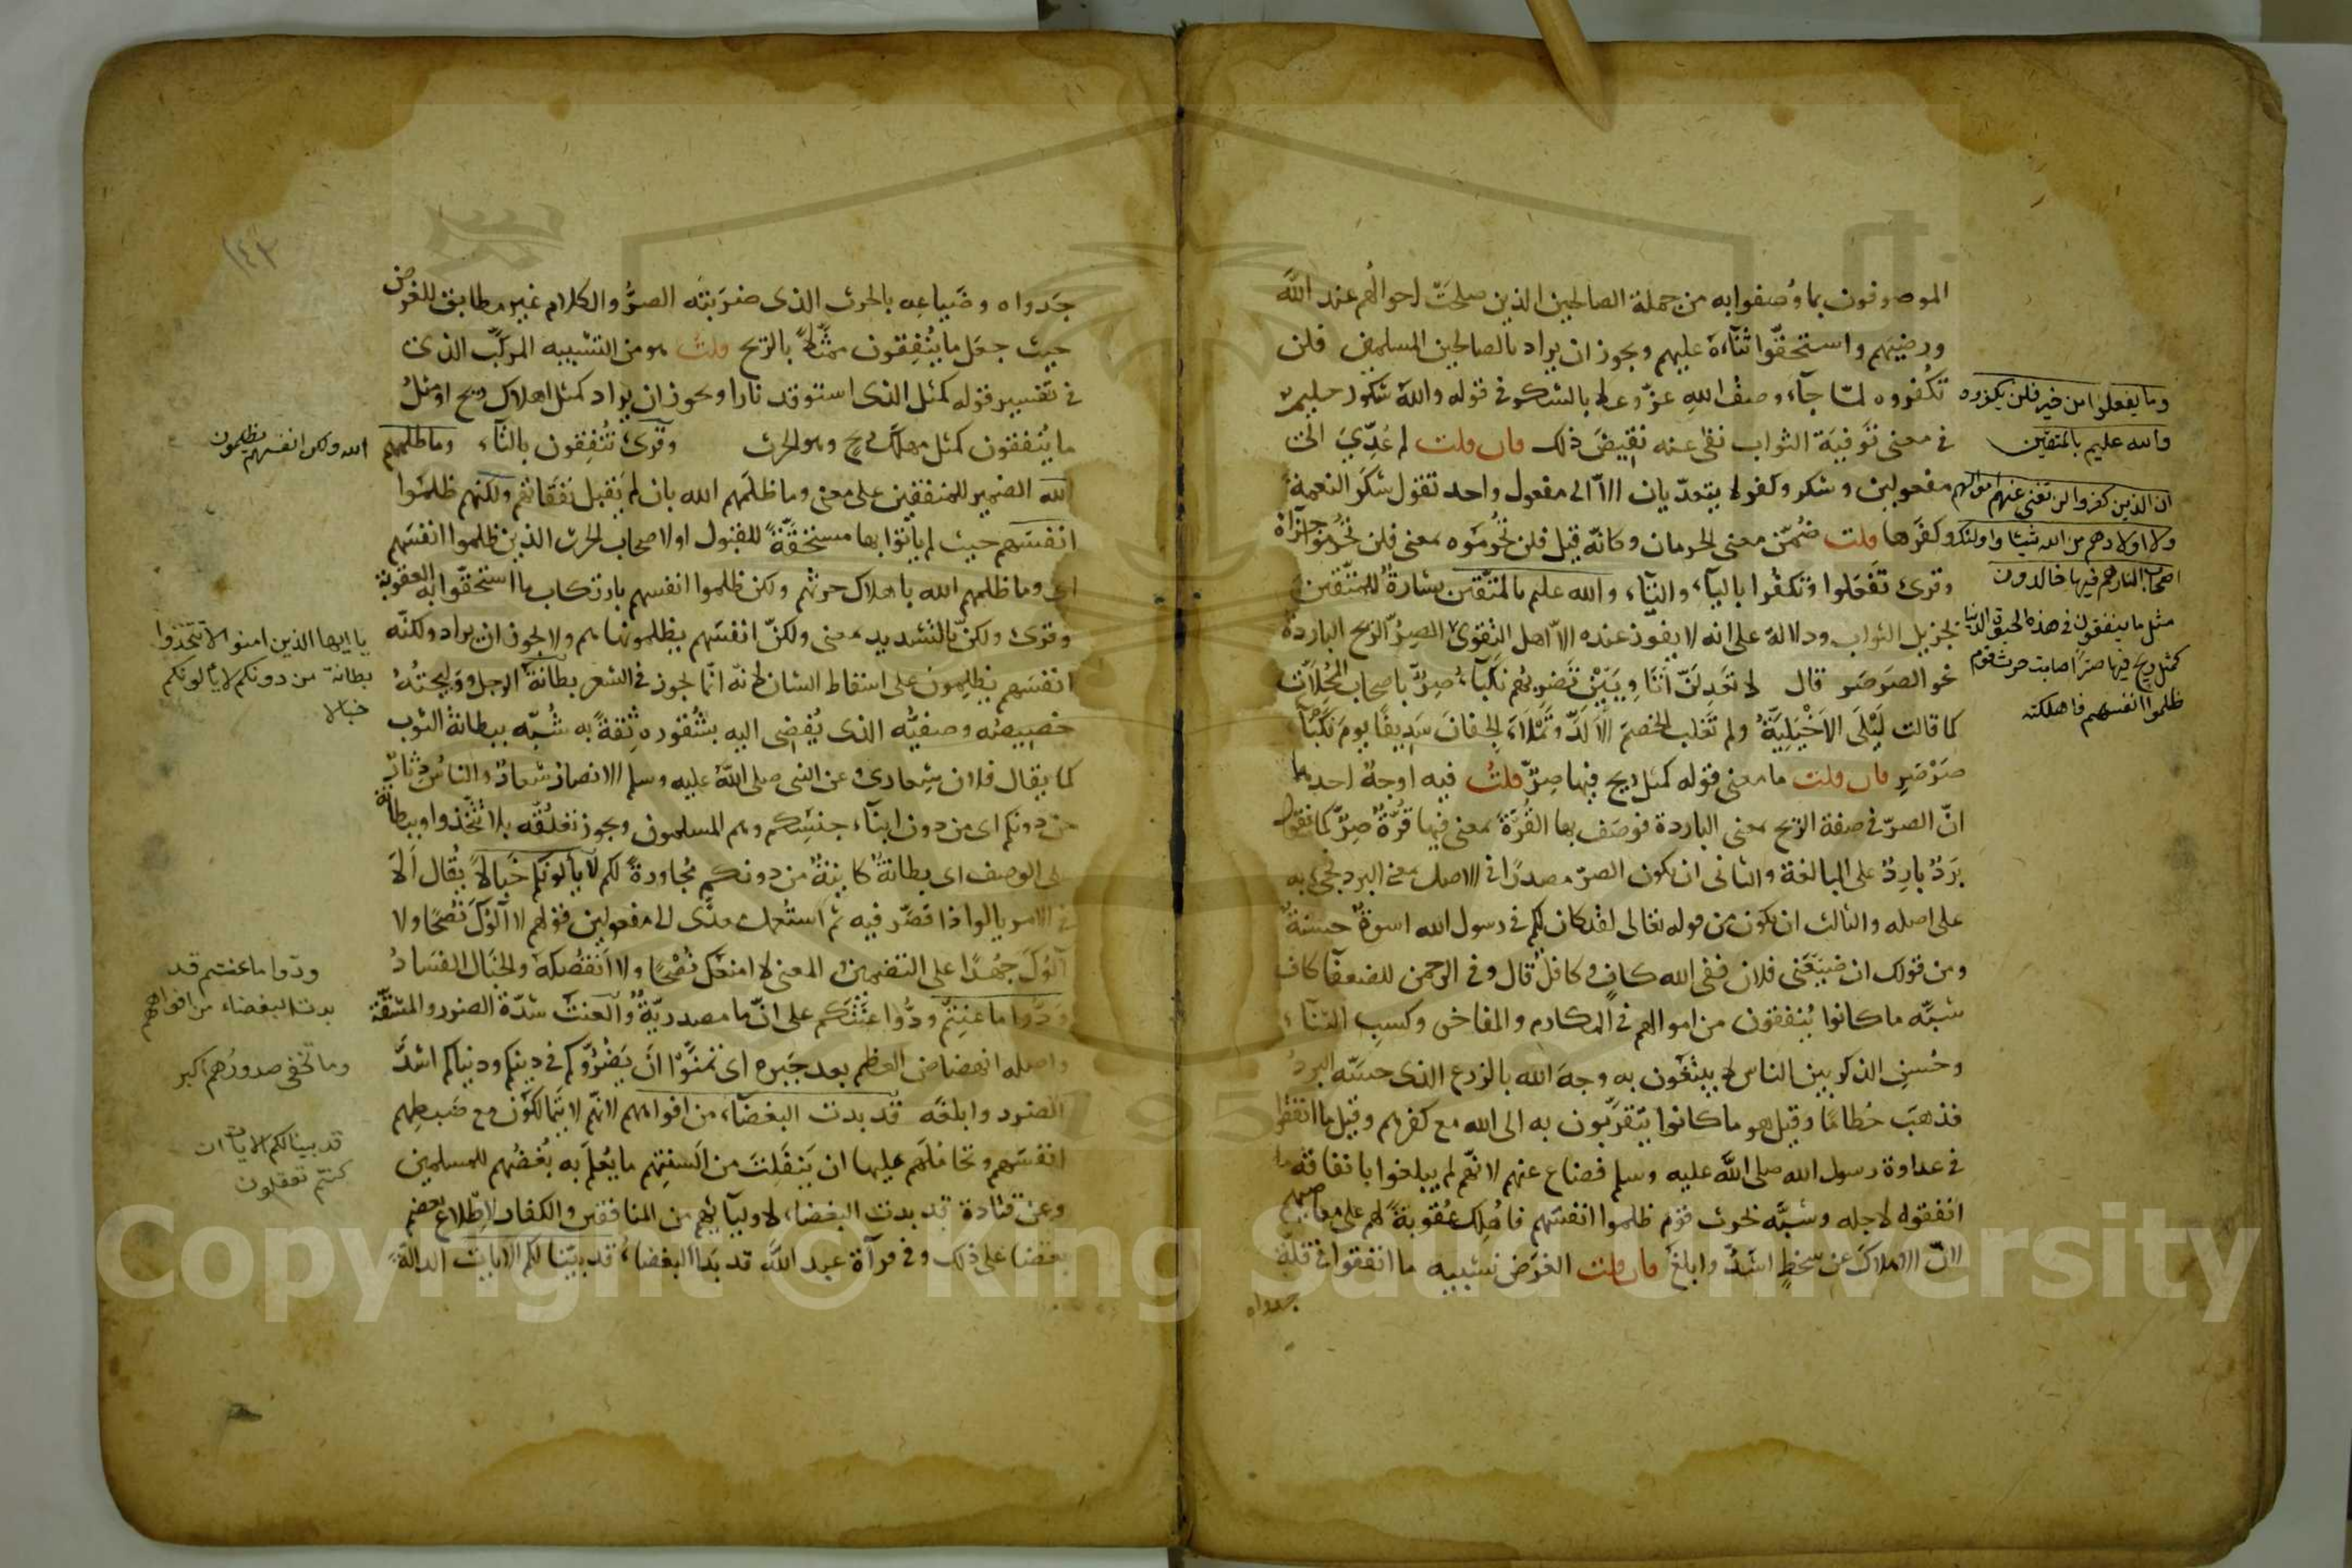 الموصوفون بما وُصفوا به من جملة الصالحين الذين صلحت احوالهم عند الله
ورضيهم واستحقوا ثناءه عليهم ويجوز ان يراد بالصالحين المسلمين فلن
تكفروه لما جاء وصف الله عز وعلا بالشكر في قوله والله شكور حليم
في معنى توفية الثواب نفى عنه نقيض ذلك فان قلت لم عدي الى
مفعولين وشكر وكفر لا يتعديان الا الى مفعول واحد تقول شكر النعمة
وكفرها قلت ضمن معنى الحرمان وكانه قيل فلن تحرموه بمعنى فلن تحرموا جزاه
وقرئ تفعلوا وتكفروا بالياء والتاء والله عليم بالمتقين بشارة للمتقين
بجزيل الثواب ودلالة على انه لا يفوز عنده الا اهل التقوى الصر الريح الباردة
نحو الصرصر قال لا تعدلن اتاويين تضربهم نكباء صر باصحاب المحلات
كما قالت ليلى الاخيلية ولم تغلب الخصم الالد وتملا الجفان سديفا يوم نكباء
صرصر فان قلت ما معنى قوله كمثل ريح فيها صر قلت فيه اوجه احدها
ان الصر في صفة الريح بمعنى الباردة فوصف بها القرة بمعنى فيها قرة صر كما تقول
برد بارد على المبالغة والثاني ان يكون الصر مصدرا في الاصل بمعنى البرد فجيء به
على اصله والثالث ان يكون من قوله تعالى لقد كان لكم في رسول الله اسوة حسنة
ومن قولك ان ضيعني فلان ففي الله كاف وكافل قال وفي الرحمن للضعفا كاف
شبه ما كانوا ينفقون من اموالهم في المكارم والمفاخر وكسب الثناء
وحسن الذكر بين الناس لا يبتغون به وجه الله بالزرع الذي حسه البرد
فذهب حطاما وقيل هو ما كانوا يتقربون به الى الله مع كفرهم وقيل ما انفقوا
في عداوة رسول الله صلى الله عليه وسلم فضاع عنهم لانهم لم يبلغوا بانفاقه ما
انفقوه لاجله وشبه بحرث قوم ظلموا انفسهم فاهلك عقوبة لهم على معاصيهم
لان الاهلاك عن سخط اشد وابلغ فان قلت الغرض تشبيه ما انفقوا في قلة
جدواه
وما يفعلوا من خير فلن يكفروه
والله عليم بالمتقين
ان الذين كفروا لن تغني عنهم اموالهم
ولا اولادهم من الله شيئا واولئك
اصحاب النار هم فيها خالدون
مثل ما ينفقون في هذه الحيوة الدنيا
كمثل ريح فيها صر اصابت حرث قوم
ظلموا انفسهم فاهلكته
١٤٢
جدواه وضياعه بالحرث الذي ضربته الصر والكلام غير مطابق للغرض
حيث جعل ما ينفقون ممثلا بالريح قلت هو من التشبيه المركب الذي
في تفسير قوله كمثل الذي استوقد نارا ويجوز ان يراد كمثل اهلاك ريح او مثل
ما ينفقون كمثل مهلك ريح وهو الحرث وقرئ تنفقون بالتاء وما ظلمهم
الله الضمير للمنفقين على معنى وما ظلمهم الله بان لم يقبل نفقاتهم ولكنهم ظلموا
انفسهم حيث لم يأتوا بها مستحقة للقبول او لاصحاب الحرث الذين ظلموا انفسهم
اي وما ظلمهم الله باهلاك حرثهم ولكن ظلموا انفسهم بارتكاب ما استحقوا به العقوبة
وقرئ ولكن بالتشديد بمعنى ولكن انفسهم يظلمونها هم ولا يجوز ان يراد ولكنه
انفسهم يظلمون على اسقاط الشان لانه انما يجوز في الشعر بطانة الرجل ووليجته
خصيصه وصفيه الذي يفضي اليه بشقوره ثقة به شبه ببطانة الثوب
كما يقال فلان شعاري وعن النبي صلى الله عليه وسلم الانصار شعار والناس دثار
من دونكم اي من دون ابناء جنسكم وهم المسلمون ويجوز تعلقه بلا تتخذوا وببطانة
على الوصف اي بطانة كاينة من دونكم مجاورة لكم لا يألونكم خبالا يقال الا
في الامر يالوا اذا قصر فيه ثم استعمل معدى الى مفعولين في قولهم لا الوك نصحا ولا
آلوك جهدا على التضمين والمعنى لا امنعك نصحا ولا انقصكه والخبال الفساد
ودوا ما عنتم ودوا عنتكم على ان ما مصدرية والعنت شدة الضرر والمشقة
واصله انهضاض العظم بعد جبره اي تمنوا ان يضروكم في دينكم ودنياكم اشد
الضرر وابلغه قد بدت البغضاء من افواههم لانهم لا يتمالكون مع ضبطهم
انفسهم وتحاملهم عليها ان ينفلت من السنتهم ما يعلم به بغضهم للمسلمين
وعن قتادة قد بدت البغضاء لاوليآيهم من المنافقين والكفار لاطلاع بعضهم
بعضا على ذلك وفي قرآة عبد الله قد بدا البغضاء قد بينا لكم الايات الدالة
الله ولكن انفسهم يظلمون
يا ايها الذين امنوا لا تتخذوا
بطانة من دونكم لا يألونكم
خبالا
ودوا ما عنتم قد
بدت البغضاء من افواههم
وما تخفي صدورهم اكبر
قد بينا لكم الايات ان
كنتم تعقلون
Copyright © King Saud University